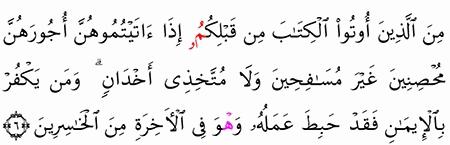 مِنَ ٱلَّذِينَ أُوتُوا۟ ٱلۡكِتَٰبَ مِن قَبۡلِكُمُۥ إِذَا ءَاتَيۡتُمُوهُنَّ أُجُورَهُنَّ
مُحۡصِنِينَ غَيۡرَ مُسَٰفِحِينَ وَلَا مُتَّخِذِي أَخۡدَانٖۗ وَمَن يَكۡفُرۡ
بِالۡإِيمَٰنِ فَقَدۡ حَبِطَ عَمَلُهُۥ وَهۡوَ فِي ٱلۡأٓخِرَةِ مِنَ ٱلۡخَٰسِرِينَ ٦